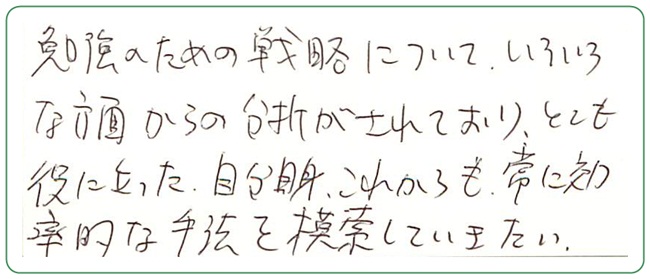 勉強のための戦略について、いろいろ
な方面からの分析がされており、とても
役に立った。自分自身、これからも、常に効
率的な手法を模索していきたい。